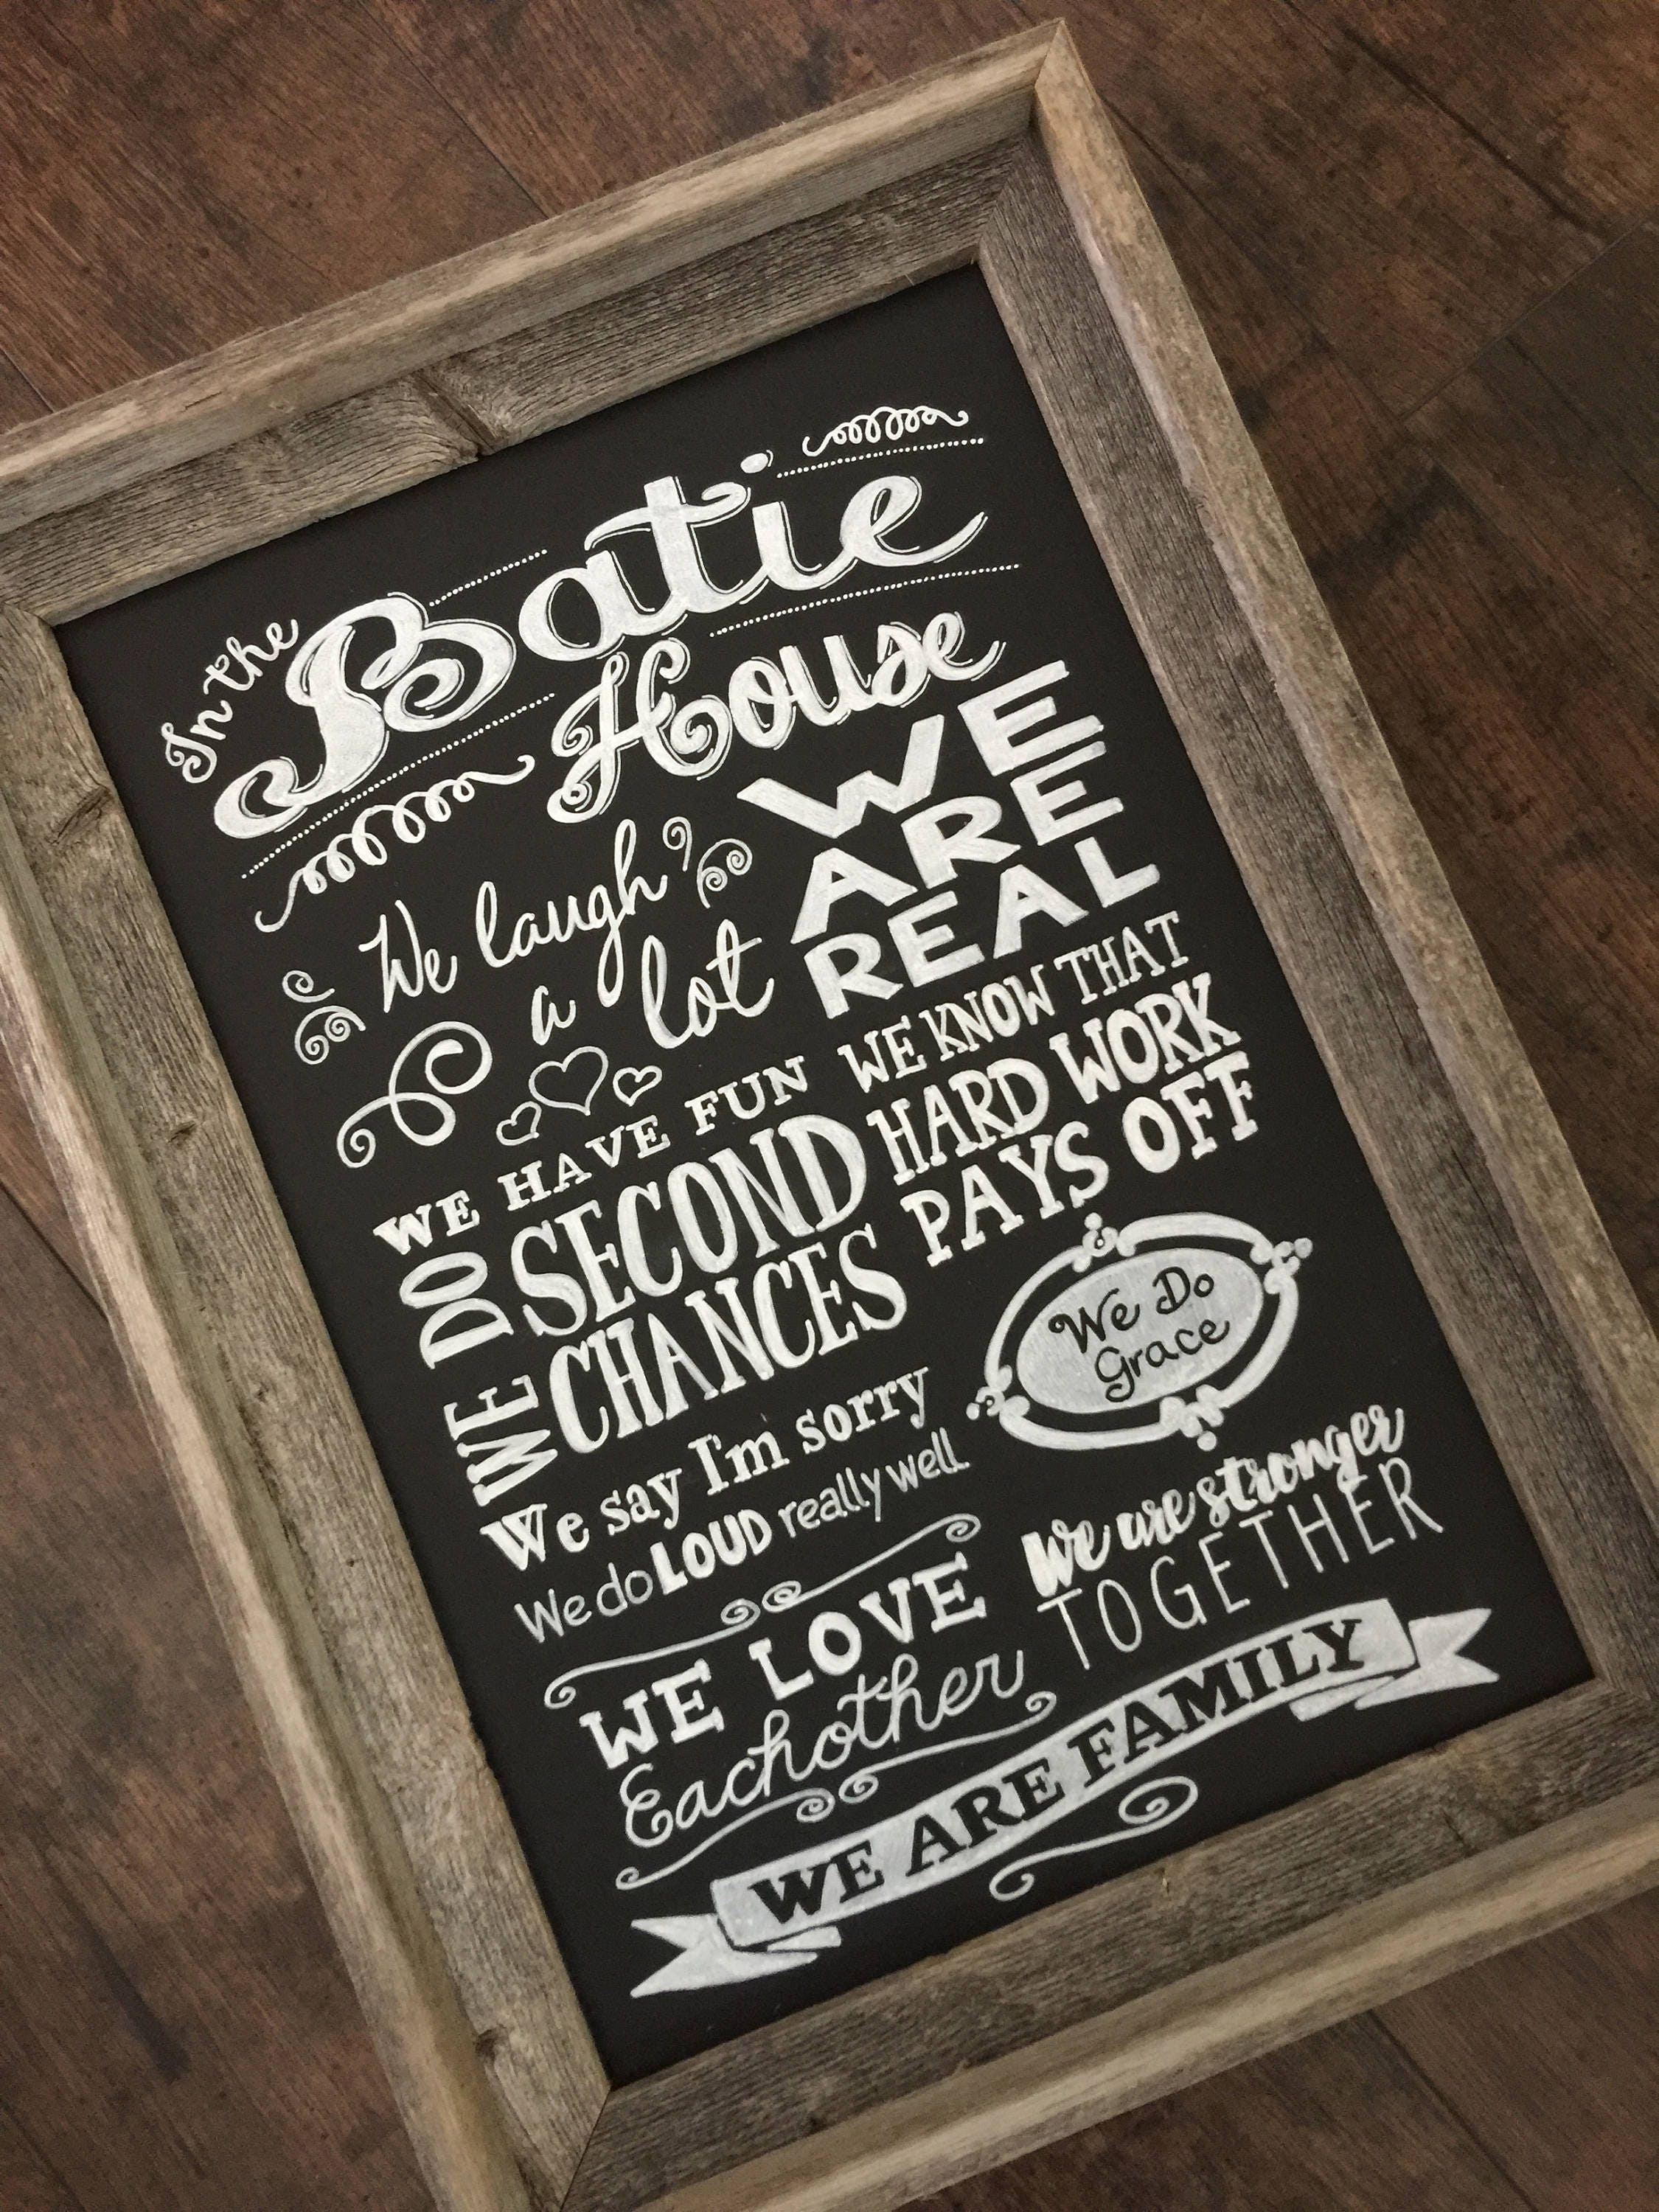 In the
Batie
House
We laugh
a lot
WE
ARE
REAL
WE HAVE FUN
WE KNOW THAT
HARD WORK
PAYS OFF
WE DO
SECOND
CHANCES
We Do
Grace
We say I'm sorry
We do LOUD really well.
We are stronger
TOGETHER
WE LOVE
Eachother
WE ARE FAMILY